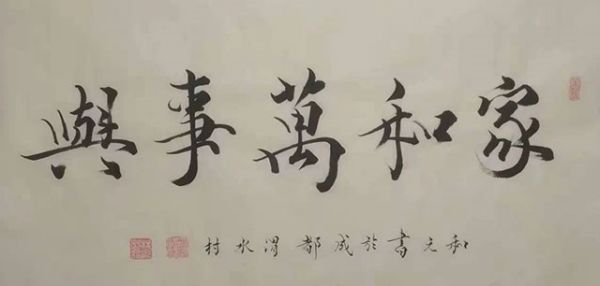 家和萬事興
和元書於成都渭水村